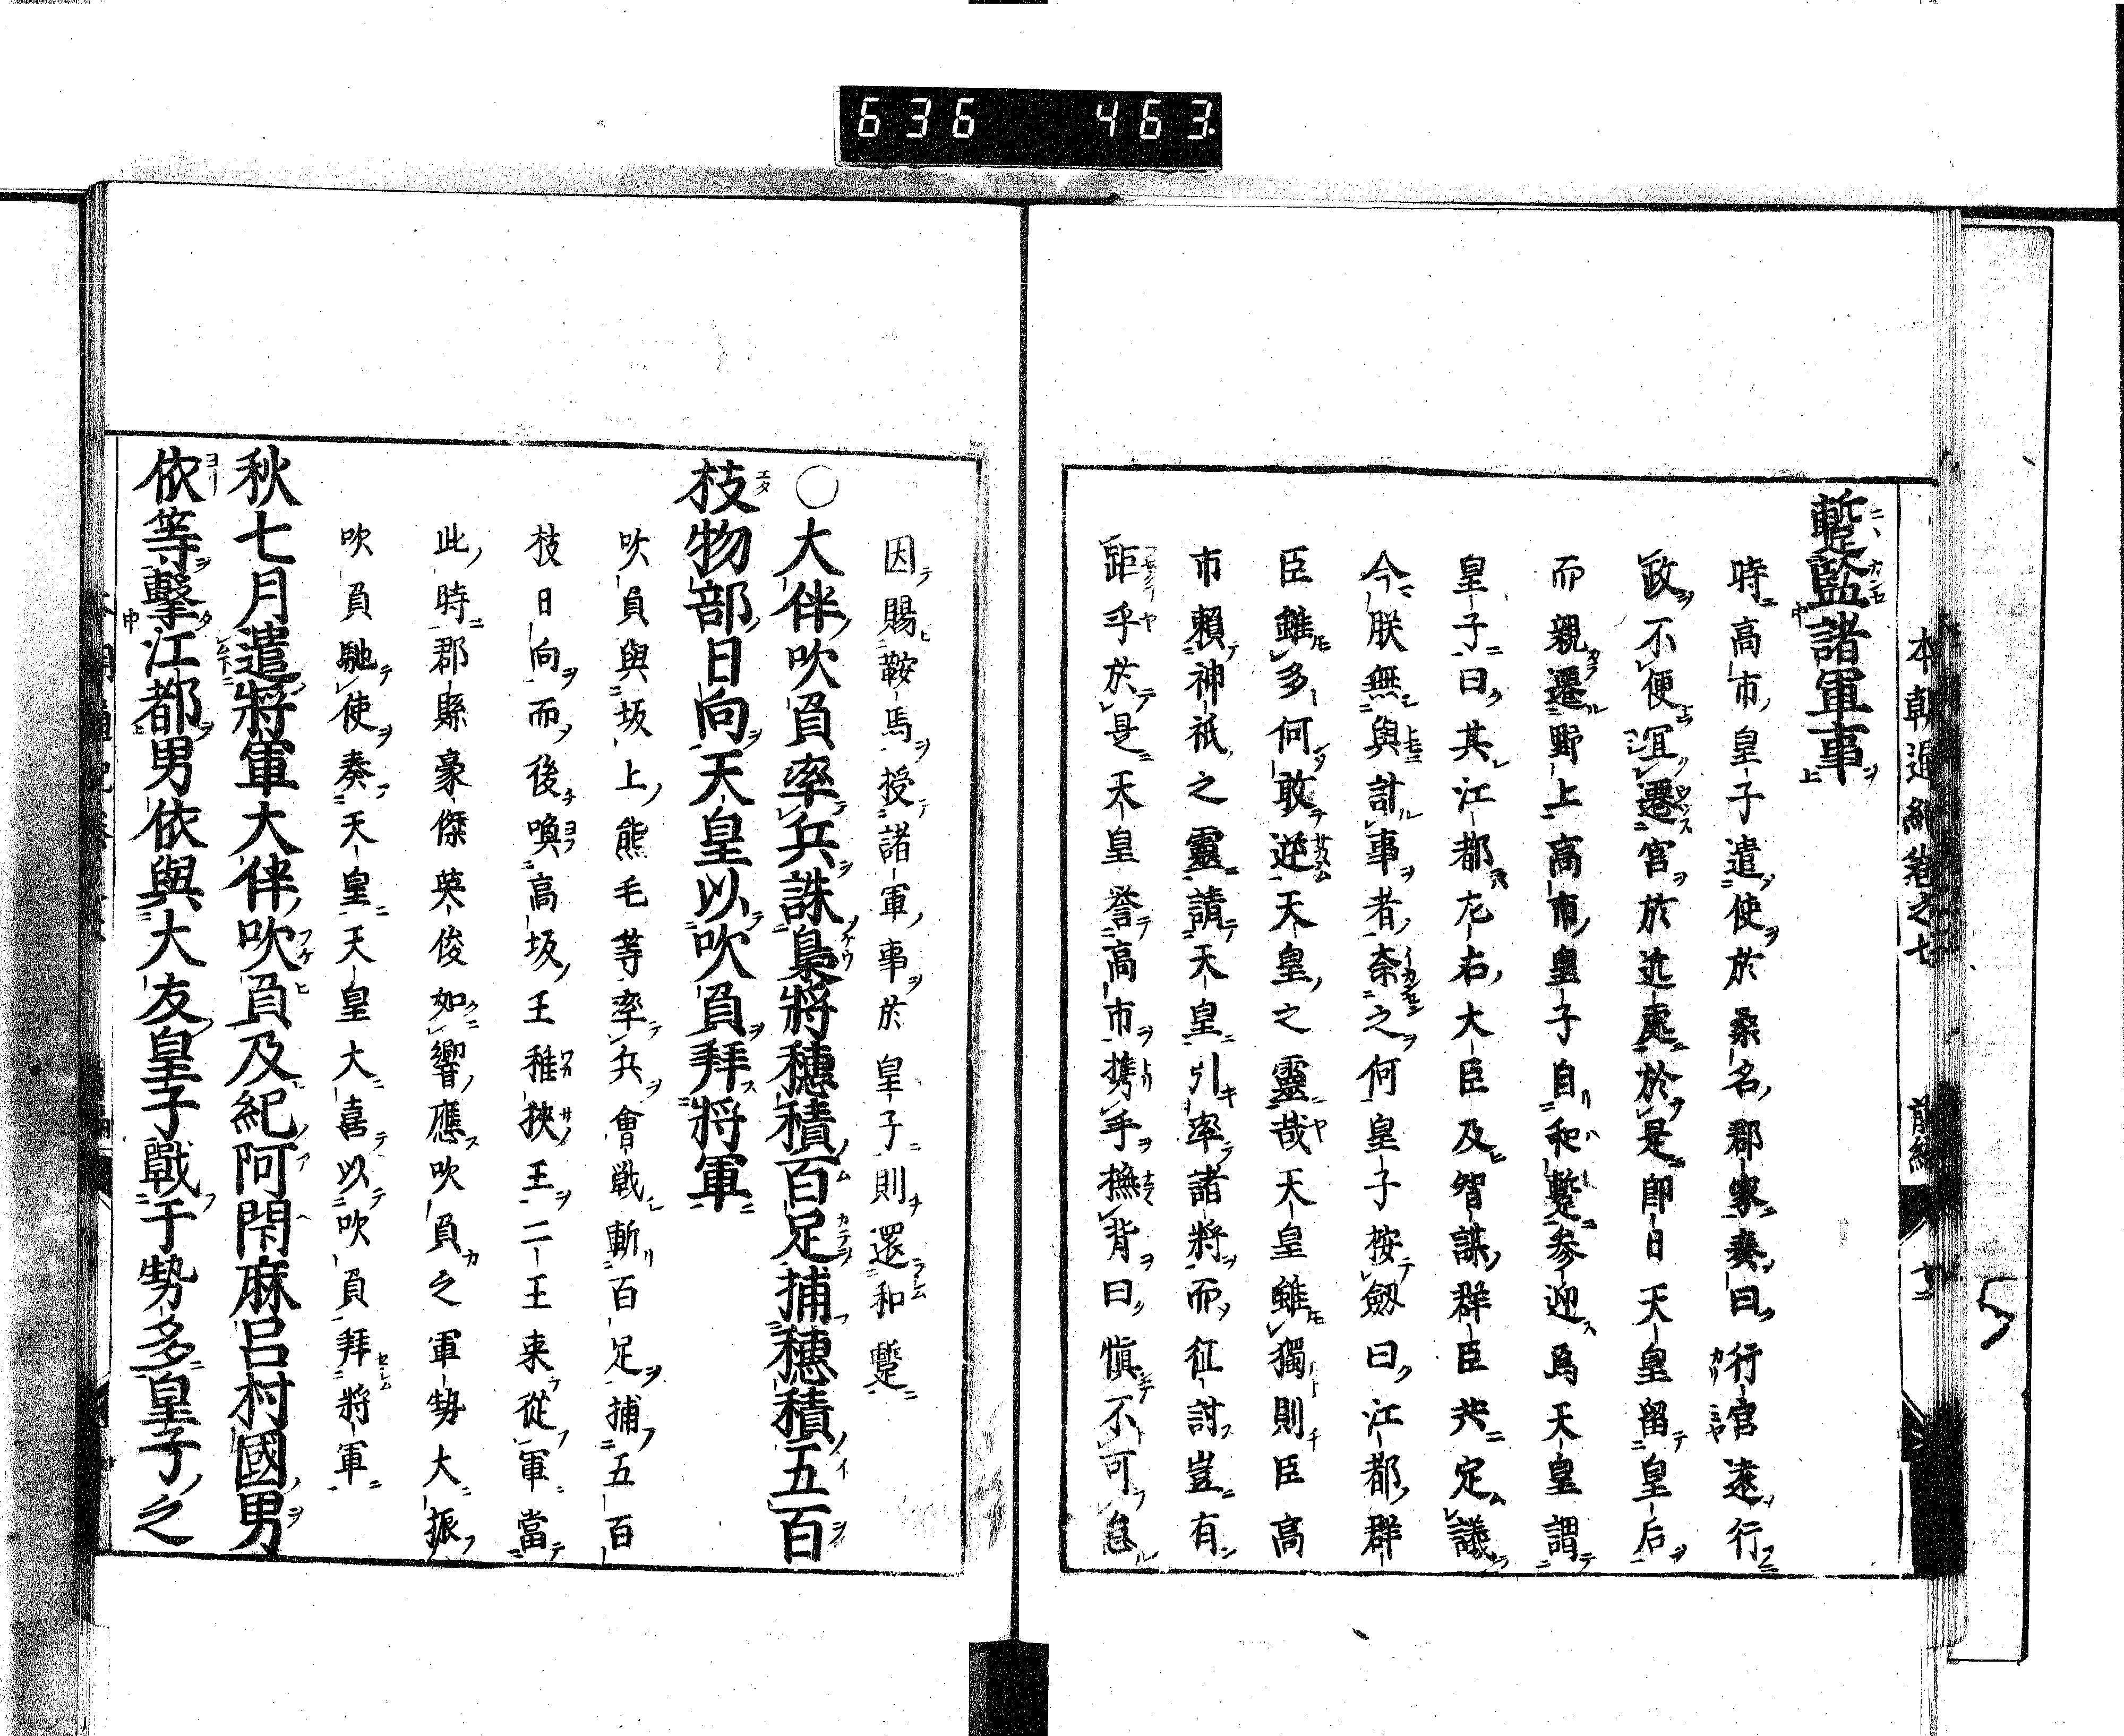 636 463
本朝通紀卷之七 前編 十二
蹔監諸軍事
時高市皇子遣使於桑名郡家奏曰行宮遠行
政不便冝遷宮於近處於是即日天皇留皇后
而親遷野上高市皇子自和蹔参迎爲天皇謂
皇子曰其江都左右大臣及智謀群臣共定議
今朕無與計事者奈之何皇子按劔曰江都群
臣雖多何敢逆天皇之靈哉天皇雖獨則臣高
市賴神祇之靈請天皇引率諸將而征討豈有
距乎於是天皇誉高市携手撫背曰愼不可怠
因賜鞍馬授諸軍事於皇子則還和蹔
○大伴吹負率兵誅梟將穗積百足捕穗積五百
枝物部日向天皇以吹負拜將軍
吹負與坂上熊毛等率兵會戦斬百足捕五百
枝日向而後喚高坂王稚狹王二王来從軍當
此時郡縣豪傑英俊如響應吹負之軍勢大振
吹負馳使奏天皇天皇大喜以吹負拜將軍
秋七月遣將軍大伴吹負及紀阿閇麻呂村國男
依等擊江都男依與大友皇子戰于勢多皇子之
5